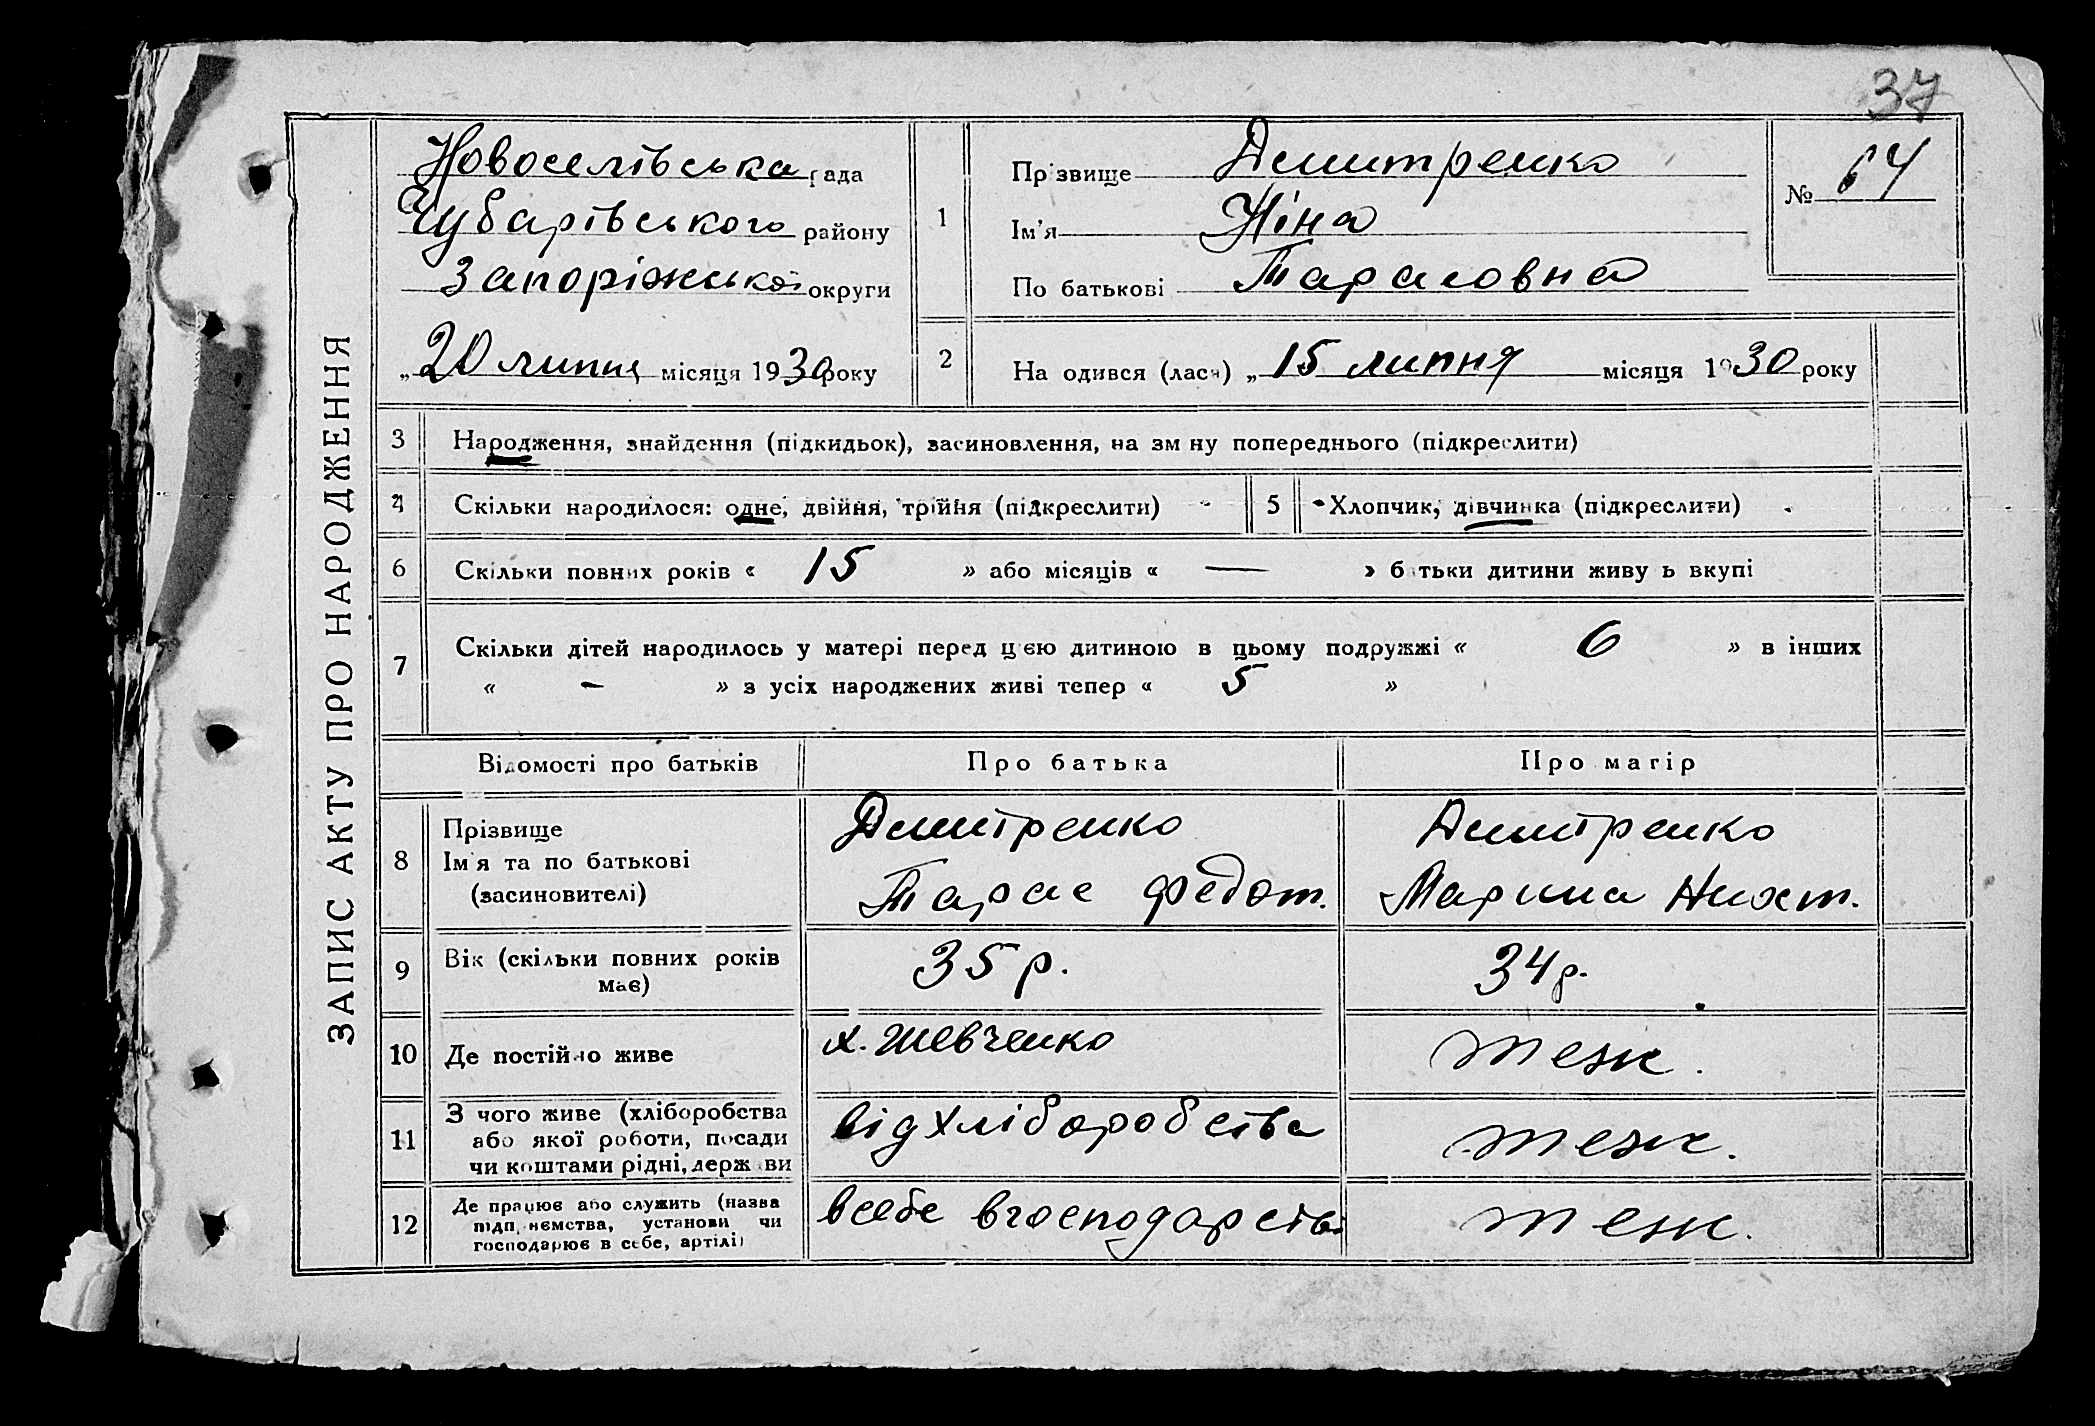 37
ЗАПИС АКТУ ПРО НАРОДЖЕННЯ
Новоселівська рада
Чубарівського району
Запоріжської округи
„20 липня місяця 1930 року
1
Прізвище Дмитренко
Ім'я Ніна
По батькові Тарасовна
№ 64
2
На одився (лася) „15 липня місяця 1930 року
3 Народження, знайдення (підкидьок), засиновлення, на зм ну попереднього (підкреслити)
4 Скільки народилося: одне, двійня, трійня (підкреслити)
5 Хлопчик, дівчинка (підкреслити)
6 Скільки повних років « 15 » або місяців « — » батьки дитини живу ь вкупі
7 Скільки дітей народилось у матері перед цією дитиною в цьому подружжі « 6 » в інших
« – » з усіх народжених живі тепер « 5 »
Відомості про батьків Про батька Про матір
8 Прізвище
Ім'я та по батькові
(засиновителі)
Дмитренко
Тарас Федот.
Дмитренко
Марина Никт.
9 Вік (скільки повних років
має)
35 р.
34 р.
10 Де постійно живе
х. Шевченко
теж.
11 З чого живе (хліборобства
або якої роботи, посади
чи коштами рідні, держ ви
від хліборобства
теж.
12 Де працює або служить (назва
підп, нємства, установи чи
господарює в себе, артілі)
в себе в господарстві
теж.